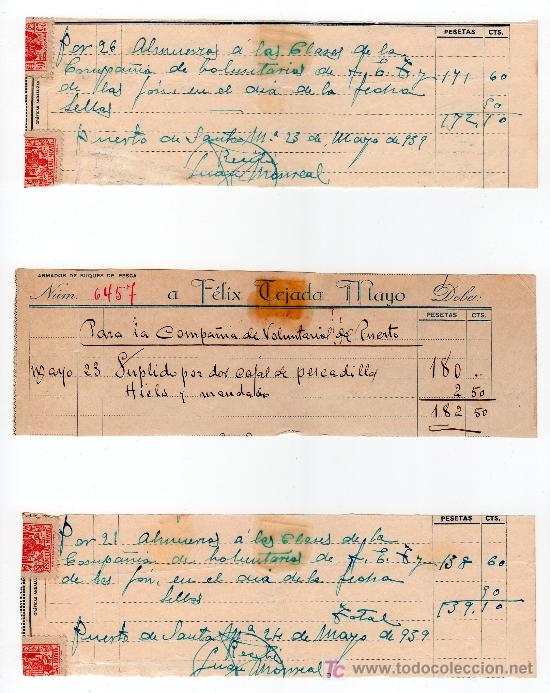 PESETAS CTS.
Por 26 Almuerzos á las Clases de la
Compañia de Voluntarios de F. E. T. y 171 60
de las Jons, en el dia de la fecha
Sellos 50
172 10
Puerto de Santa Mª 23 de Mayo de 939
Recibi
Juan Monreal
ARMADOR DE BUQUES DE PESCA
Núm. 6457 a Félix Tejada Mayo Debe:
PESETAS CTS.
Para la Compañia de Voluntarios del Puerto
Mayo 23 Suplido por dos cajas de pescadilla 180 ..
Hielo y mandados 2 50
182 50
PESETAS CTS.
Por 21 Almuerzos á las Clases de la
Compañia de Voluntarios de F. E. T. y 138 60
de las Jons, en el dia de la fecha
Sellos 50
Total 139 10
Puerto de Santa Mª 24 de Mayo de 939
Recibi
Juan Monreal
TC www.todocoleccion.net